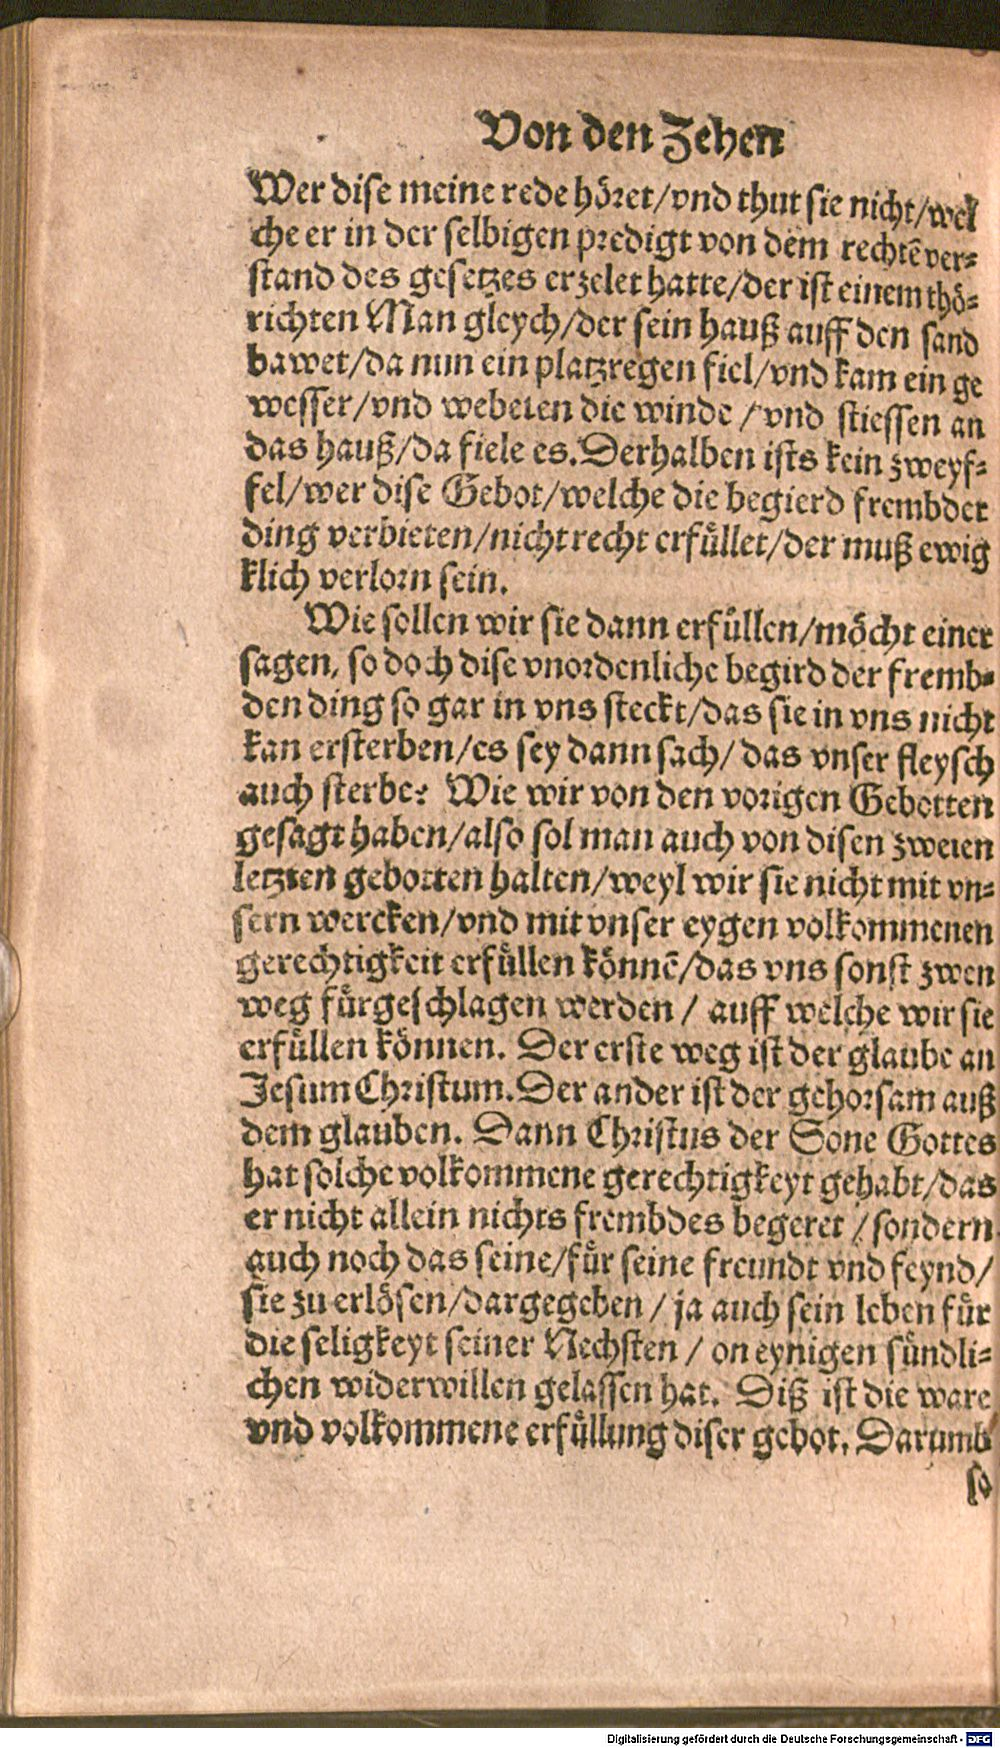 Von den Zehen
Wer dise meine rede höret/vnd thut sie nicht/wel
che er in der selbigen predigt von dem rechtē ver-
stand des gesetzes erzelet hatte/der ist einem thö-
richten Man gleych/der sein hauß auff den sand
bawet/da nun ein platzregen fiel/vnd kam ein ge
wesser/vnd webeten die winde /vnd stiessen an
das hauß/da fiele es. Derhalben ists kein zweyf-
fel/wer dise Gebot/welche die begierd frembder
ding verbieten/nicht recht erfüllet/der muß ewig
klich verlorn sein.
Wie sollen wir sie dann erfüllen/möcht einer
sagen, so doch dise vnordenliche begird der fremb-
den ding so gar in vns steckt/das sie in vns nicht
kan ersterben/es sey dann sach/ das vnser fleysch
auch sterbe? Wie wir von den vorigen Gebotten
gesagt haben/also sol man auch von disen zweien
letzten gebotten halten/weyl wir sie nicht mit vn-
sern wercken/vnd mit vnser eygen volkommenen
gerechtigkeit erfüllen könnē/das vns sonst zwen
weg fürgeschlagen werden / auff welche wir sie
erfüllen können. Der erste weg ist der glaube an
Jesum Christum. Der ander ist der gehorsam auß
dem glauben. Dann Christus der Sone Gottes
hat solche volkommene gerechtigkeyt gehabt/das
er nicht allein nichts frembdes begeret / sondern
auch noch das seine/für seine freundt vnd feynd/
sie zu erlösen/dargegeben / ja auch sein leben für
die seligkeyt seiner Nechsten / on eynigen sündli-
chen widerwillen gelassen hat. Diß ist die ware
vnd volkommene erfüllung diser gebot. Darumb
so
Digitalisierung gefördert durch die Deutsche Forschungsgemeinschaft - DFG